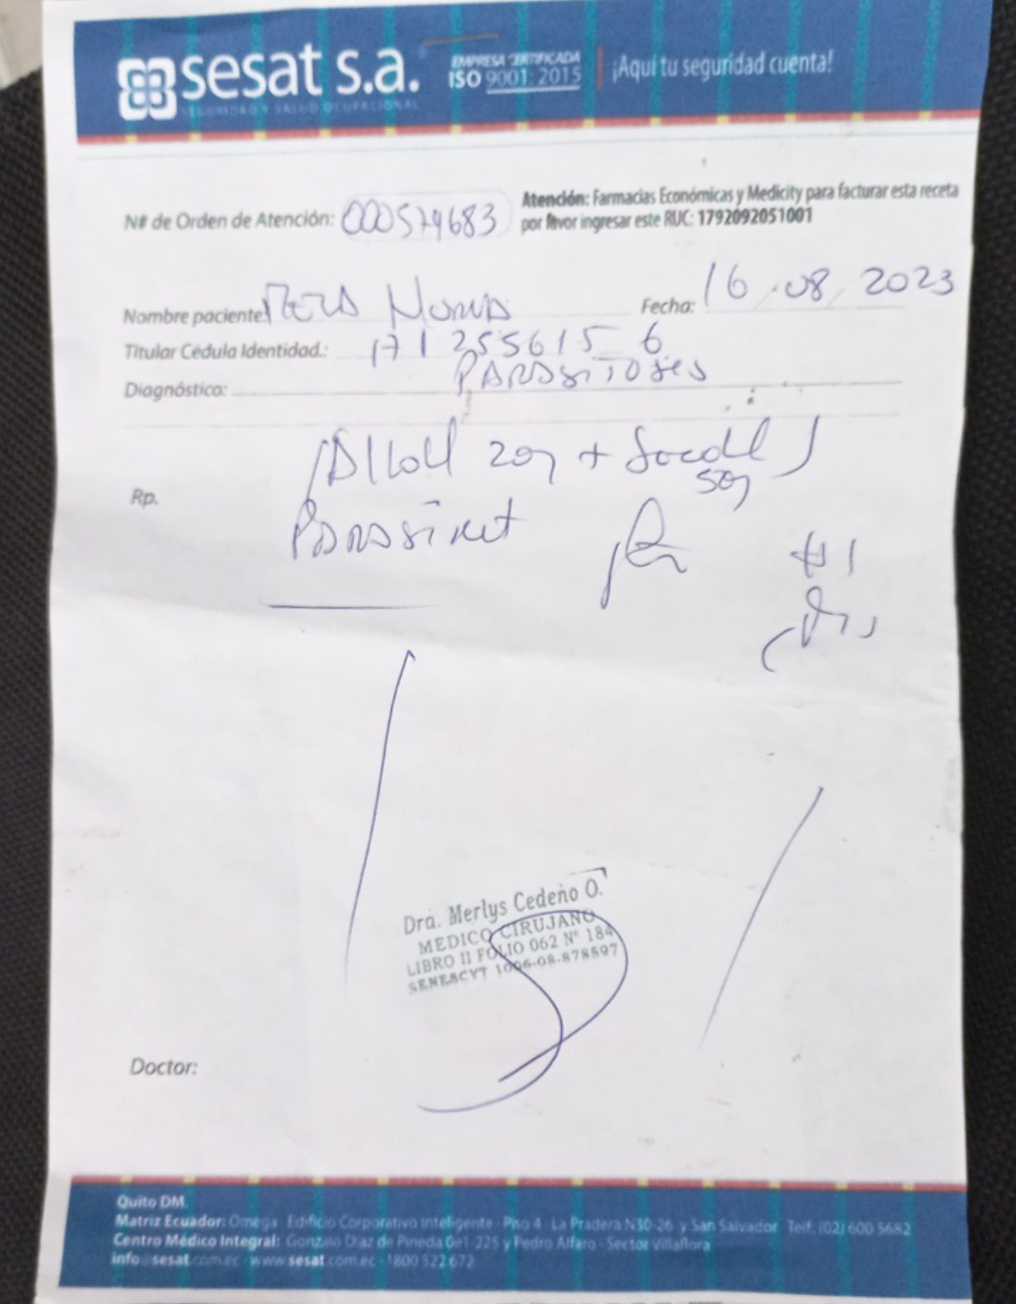 sesat s.a.
SEGURIDAD Y SALUD OCUPACIONAL
EMPRESA CERTIFICADA
ISO 9001: 2015
¡Aquí tu seguridad cuenta!
Atención: Farmacias Económicas y Medicity para facturar esta receta
por favor ingresar este RUC: 1792092051001
N# de Orden de Atención: 000579683
Nombre paciente:
Fecha: 16.08.2023
Titular Cédula Identidad.: 171255615 6
Diagnóstico: PARASITOSIS
Rp.
#1
Dra. Merlys Cedeño O.
MEDICO CIRUJANO
LIBRO II FOLIO 062 N° 184
SENESCYT 1006-08-878597
Doctor:
Quito DM.
Matriz Ecuador: Omega · Edificio Corporativo Inteligente · Piso 4 · La Pradera N30-26 y San Salvador · Telf. (02) 600 5682
Centro Médico Integral: Gonzalo Díaz de Pineda Oe1-225 y Pedro Alfaro - Sector Villaflora
info@sesat.com.ec · www.sesat.com.ec · 1800 522 672